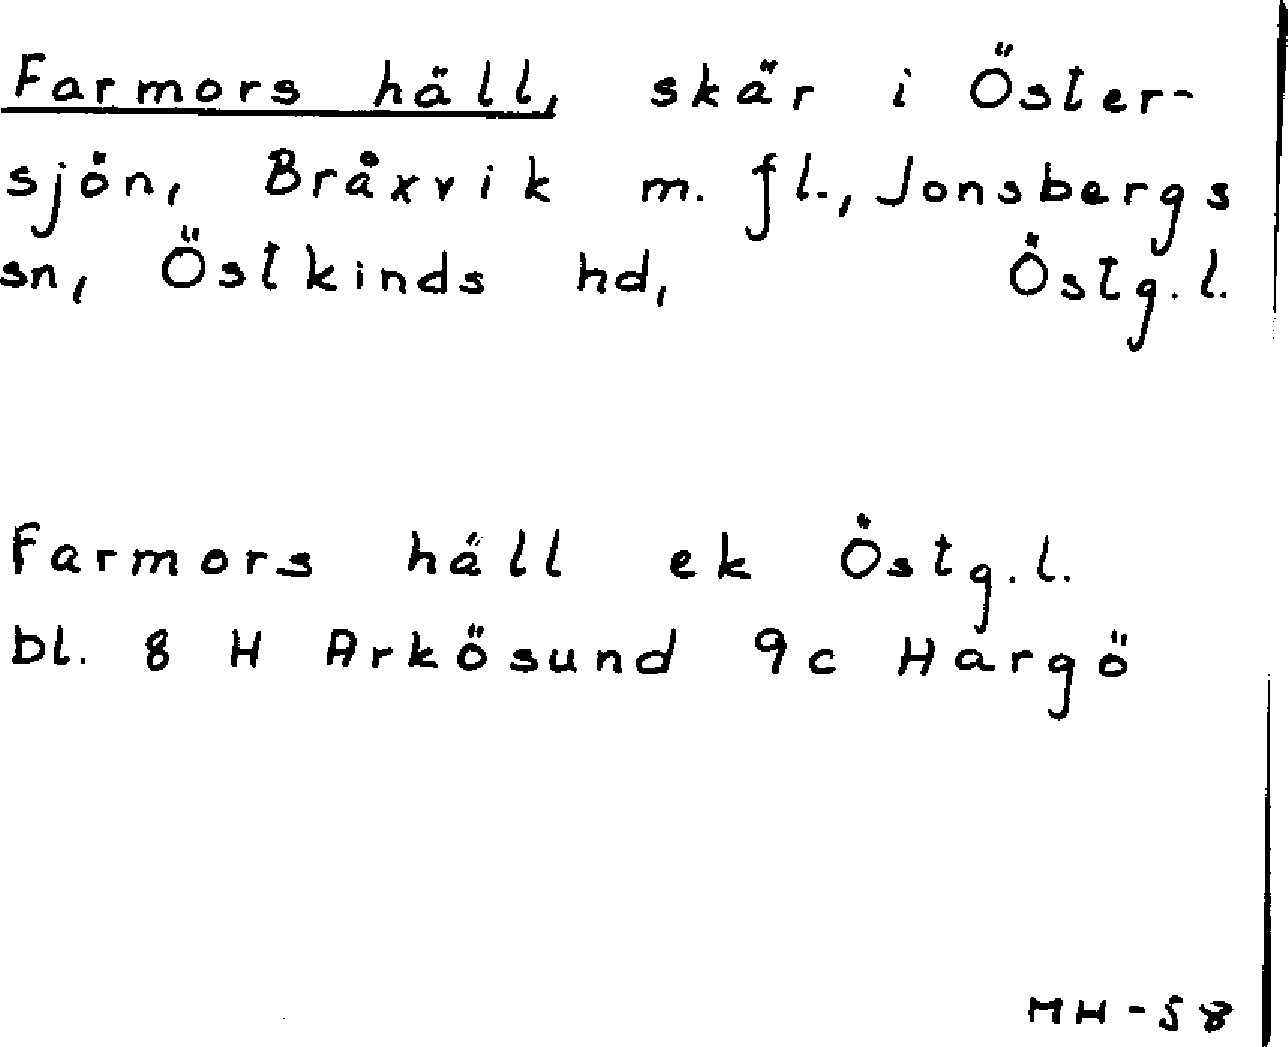 Farmors häll, skär i Öster-
sjön, Bråxvik m. fl., Jonsbergs
sn, Östkinds hd, Östg.l.
Farmors häll ek Östg.l.
bl. 8 H Arkösund 9c Hargö
MH-58